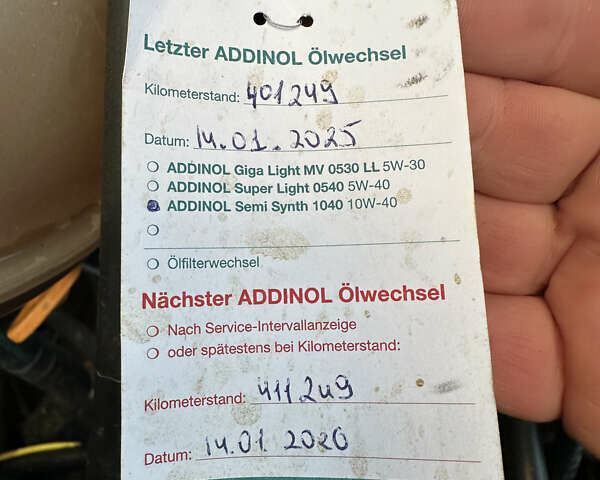 Letzter ADDINOL Ölwechsel
Kilometerstand: 401249
Datum: 14.01.2025
ADDINOL Giga Light MV 0530 LL 5W-30
ADDINOL Super Light 0540 5W-40
ADDINOL Semi Synth 1040 10W-40
Ölfilterwechsel
Nächster ADDINOL Ölwechsel
Nach Service-Intervallanzeige
oder spätestens bei Kilometerstand:
Kilometerstand: 411249
Datum: 14.01 2026